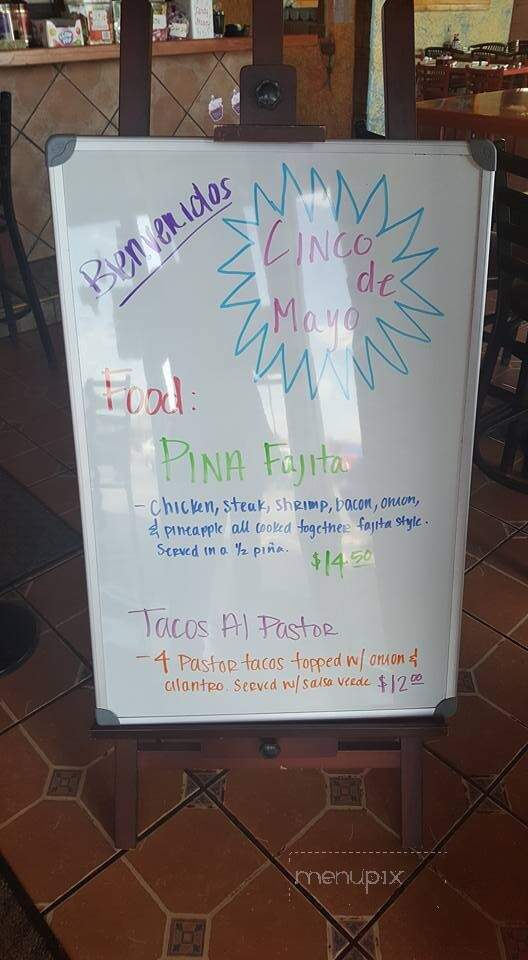 Bienvenidos
CINCO
de
Mayo
Food:
PINA Fajita
- Chicken, steak, shrimp, bacon, onion,
& pineapple all cooked together fajita style.
Served in a 1/2 piña.
$14.50
Tacos Al Pastor
- 4 Pastor tacos topped w/ onion &
cilantro. Served w/ salsa verde $12.00
menupix